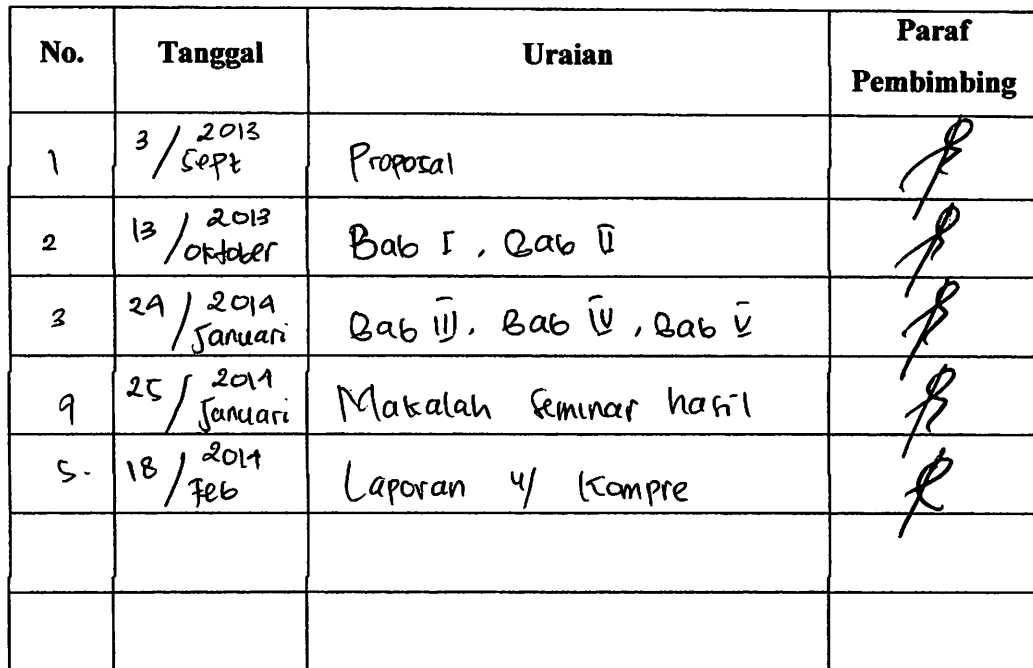 No. Tanggal Uraian Paraf Pembimbing
1 3/2013 Sept Proposal
2 13/2013 Oktober Bab I, Bab II
3 24/2014 Januari Bab III, Bab IV, Bab V
4 25/2014 Januari Makalah Seminar hasil
5. 18/2014 Feb Laporan u/ Kompre